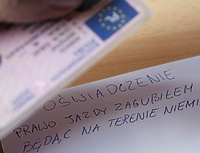 OŚWIADCZENIE
PRAWO JAZDY ZAGUBIŁEM
BĘDĄC NA TERENIE NIEMI